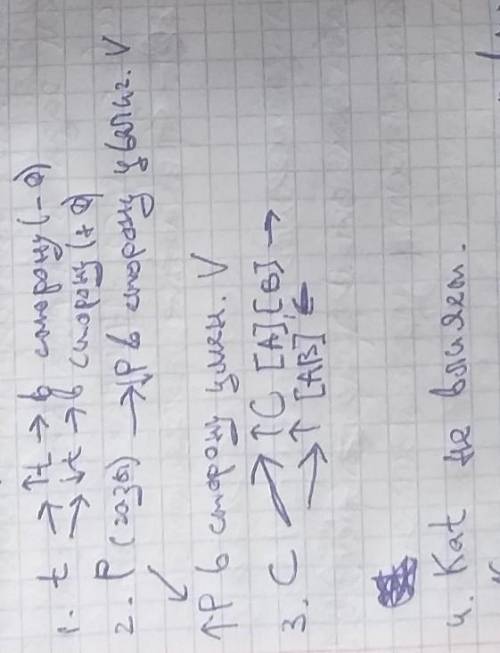 1. t → ↑t → в сторону (-Q)
→ ↓t → в сторону (+Q)
2. P (газы) → ↓P в сторону увелич. V
↙
↑P в сторону умен. V
3. C ↗ ↑C [A][B] →
→ ↑ [AB] ←
4. Kat не влияет.